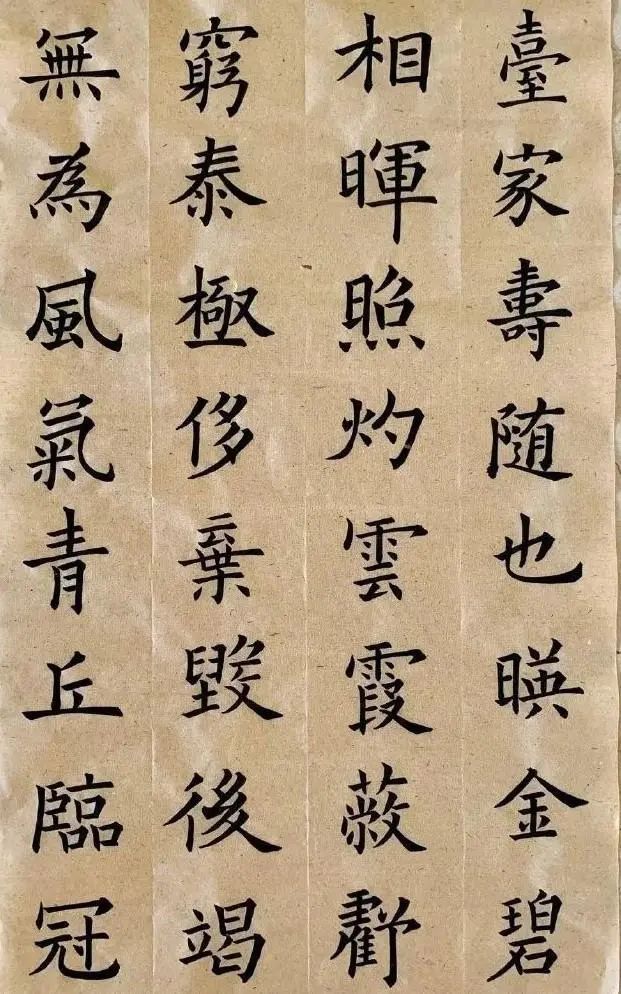 臺家壽随也暎金碧
相暉照灼雲霞蔽虧
窮泰極侈棄毀後竭
無為風氣青丘臨冠